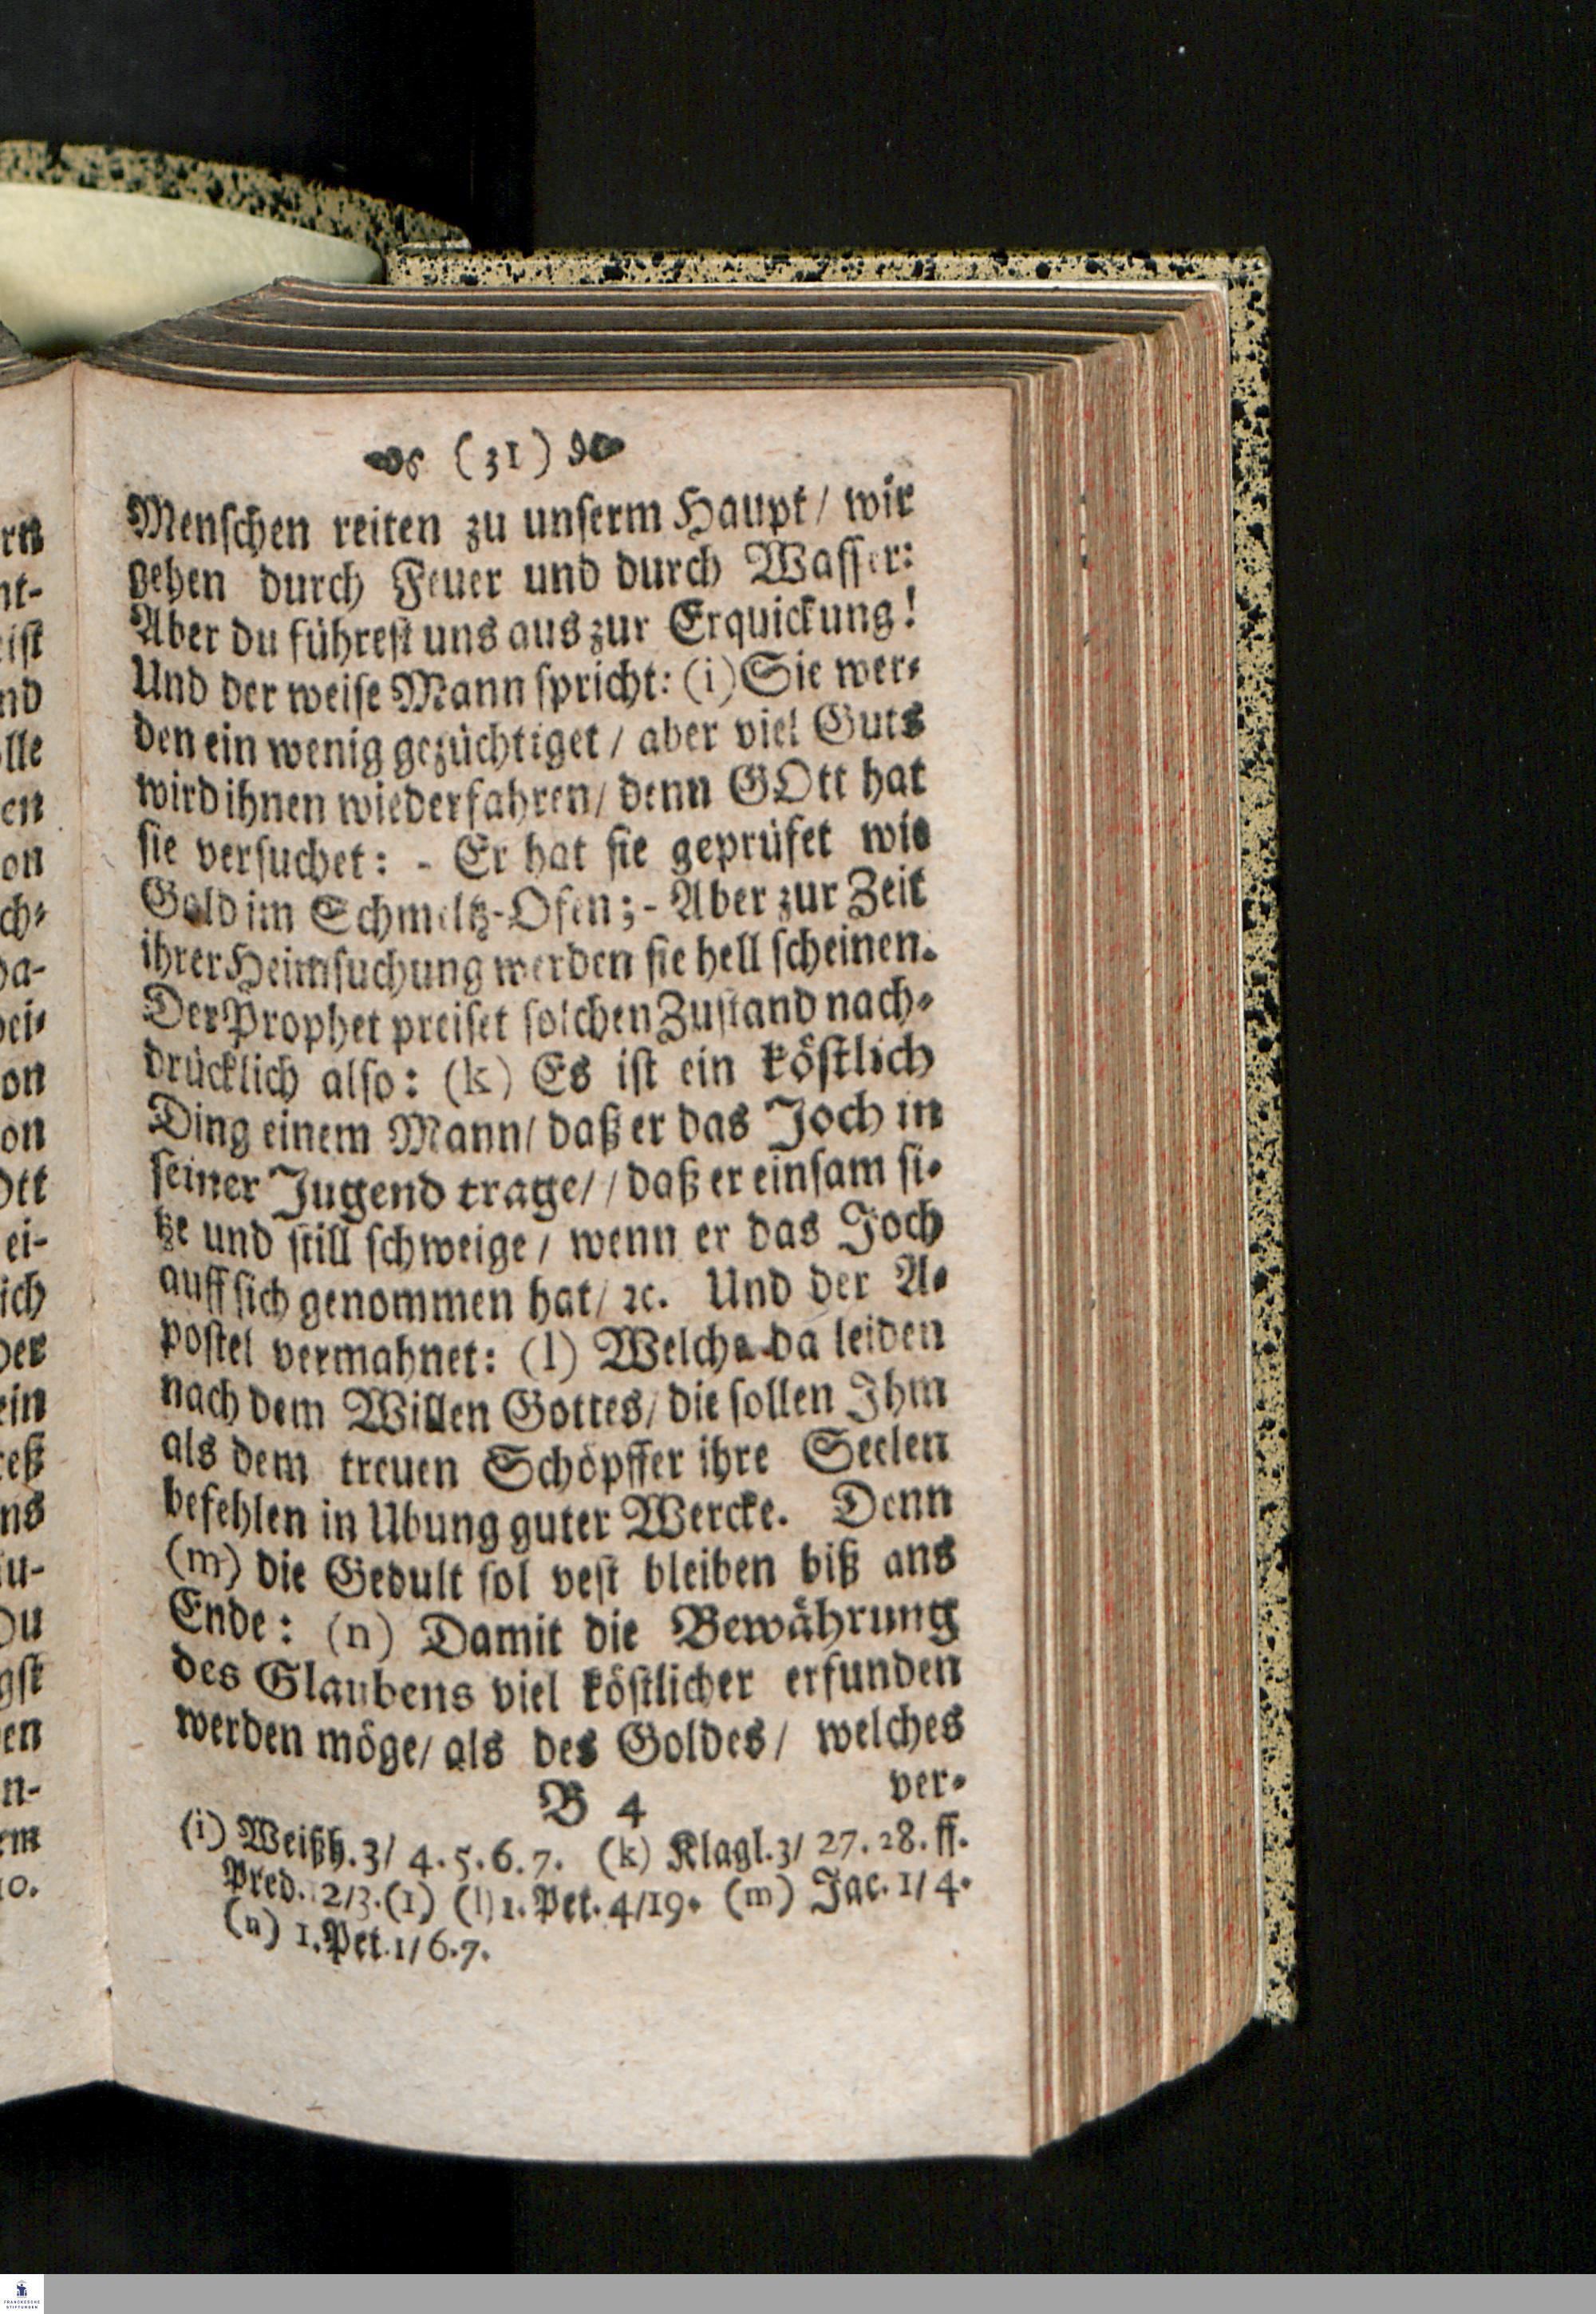 (31)
Menschen reiten zu unserm Haupt / wir
gehen durch Feuer und durch Wasser:
Aber du führest uns aus zur Erquickung!
Und der weise Mann spricht: (i) Sie wer-
den ein wenig gezüchtiget / aber viel Guts
wird ihnen wiederfahren / denn GOtt hat
sie versuchet: - Er hat sie geprüfet wie
Gold im Schmeltz-Ofen; - Aber zur Zeit
ihrer Heimsuchung werden sie hell scheinen.
Der Prophet preiset solchen Zustand nach-
drücklich also: (k) Es ist ein köstlich
Ding einem Mann / daß er das Joch in
seiner Jugend trage / / daß er einsam si-
tze und still schweige / wenn er das Joch
auff sich genommen hat / ꝛc. Und der A-
postel vermahnet: (l) Welche da leiden
nach dem Willen Gottes / die sollen Ihm
als dem treuen Schöpffer ihre Seelen
befehlen in Ubung guter Wercke. Denn
(m) die Gedult sol vest bleiben biß ans
Ende: (n) Damit die Bewährung
des Glaubens viel köstlicher erfunden
werden möge / als des Goldes / welches
B 4 ver-
(i) Weißh. 3/ 4. 5. 6. 7. (k) Klagl. 3/ 27. 28. ff.
Pred. 12/3. (1) (l) 1. Pet. 4/19. (m) Jac. 1/4.
(n) 1. Pet. 1/6.7.
FRANCKESCHE
STIFTUNGEN